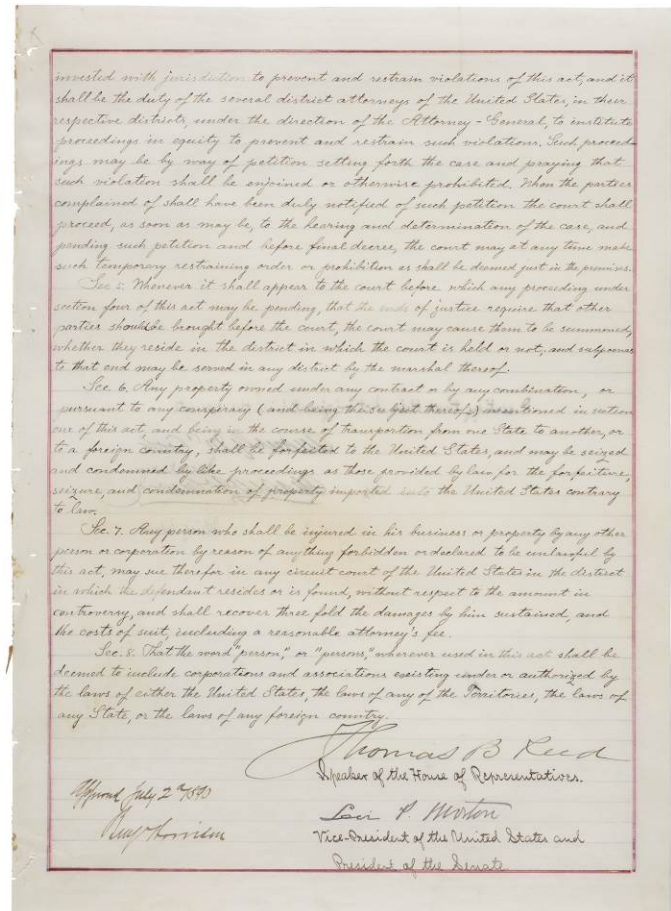 invested with jurisdiction to prevent and restrain violations of this act; and it
shall be the duty of the several district attorneys of the United States, in their
respective districts, under the direction of the Attorney-General, to institute
proceedings in equity to prevent and restrain such violations. Such proceed-
ings may be by way of petition setting forth the case and praying that
such violation shall be enjoined or otherwise prohibited. When the parties
complained of shall have been duly notified of such petition the court shall
proceed, as soon as may be, to the hearing and determination of the case; and
pending such petition and before final decree, the court may at any time make
such temporary restraining order or prohibition as shall be deemed just in the premises.
Sec. 5. Whenever it shall appear to the court before which any proceeding under
section four of this act may be pending, that the ends of justice require that other
parties should be brought before the court, the court may cause them to be summoned,
whether they reside in the district in which the court is held or not; and subpoenas
to that end may be served in any district by the marshal thereof.
Sec. 6. Any property owned under any contract or by any combination, or
pursuant to any conspiracy (and being the subject thereof) mentioned in section
one of this act, and being in the course of transportion from one State to another, or
to a foreign country, shall be forfeited to the United States, and may be seized
and condemned by like proceedings as those provided by law for the forfeiture,
seizure, and condemnation of property imported into the United States contrary
to law.
Sec. 7. Any person who shall be injured in his business or property by any other
person or corporation by reason of anything forbidden or declared to be unlawful by
this act, may sue therefor in any circuit court of the United States in the district
in which the defendant resides or is found, without respect to the amount in
controversy, and shall recover three fold the damages by him sustained, and
the costs of suit, including a reasonable attorney's fee.
Sec. 8. That the word "person," or "persons," wherever used in this act shall be
deemed to include corporations and associations existing under or authorized by
the laws of either the United States, the laws of any of the Territories, the laws of
any State, or the laws of any foreign country.
Thomas B Reed
Speaker of the House of Representatives.
Approved July 2d 1890
Benj Harrison
Levi P. Morton
Vice-President of the United States and
President of the Senate